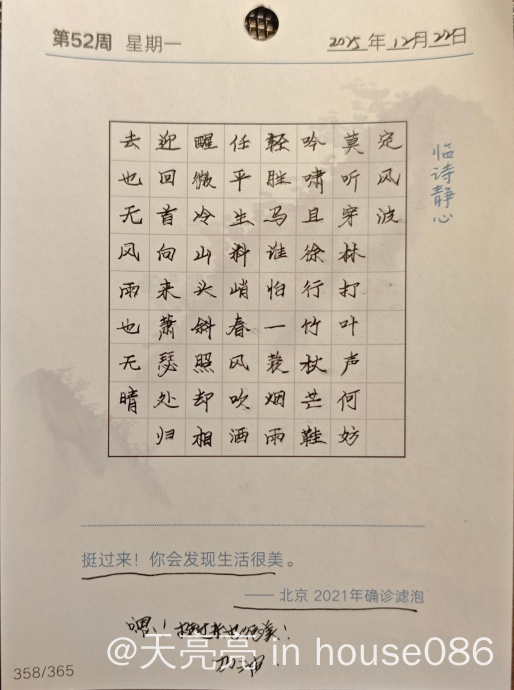 第52周 星期一
2025年12月22日
定风波
莫听穿林打叶声何妨
吟啸且徐行竹杖芒鞋
轻胜马谁怕一蓑烟雨
任平生料峭春风吹酒
醒微冷山头斜照却相
迎回首向来萧瑟处归
去也无风雨也无晴
临诗静心
挺过来！你会发现生活很美。
—— 北京 2021年确诊滤泡
嗯！挺过来也很美！
358/365
@天亮亮 in house086